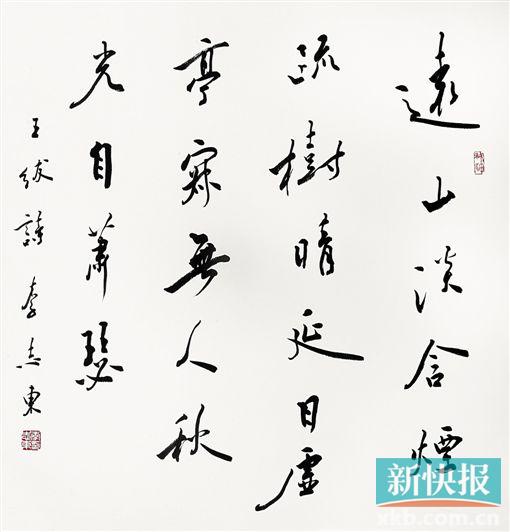 遠山淡含煙
疏樹晴延日虛
亭寂無人秋
光自蕭瑟
王紱詩 李志東
新快报
xkb.com.cn